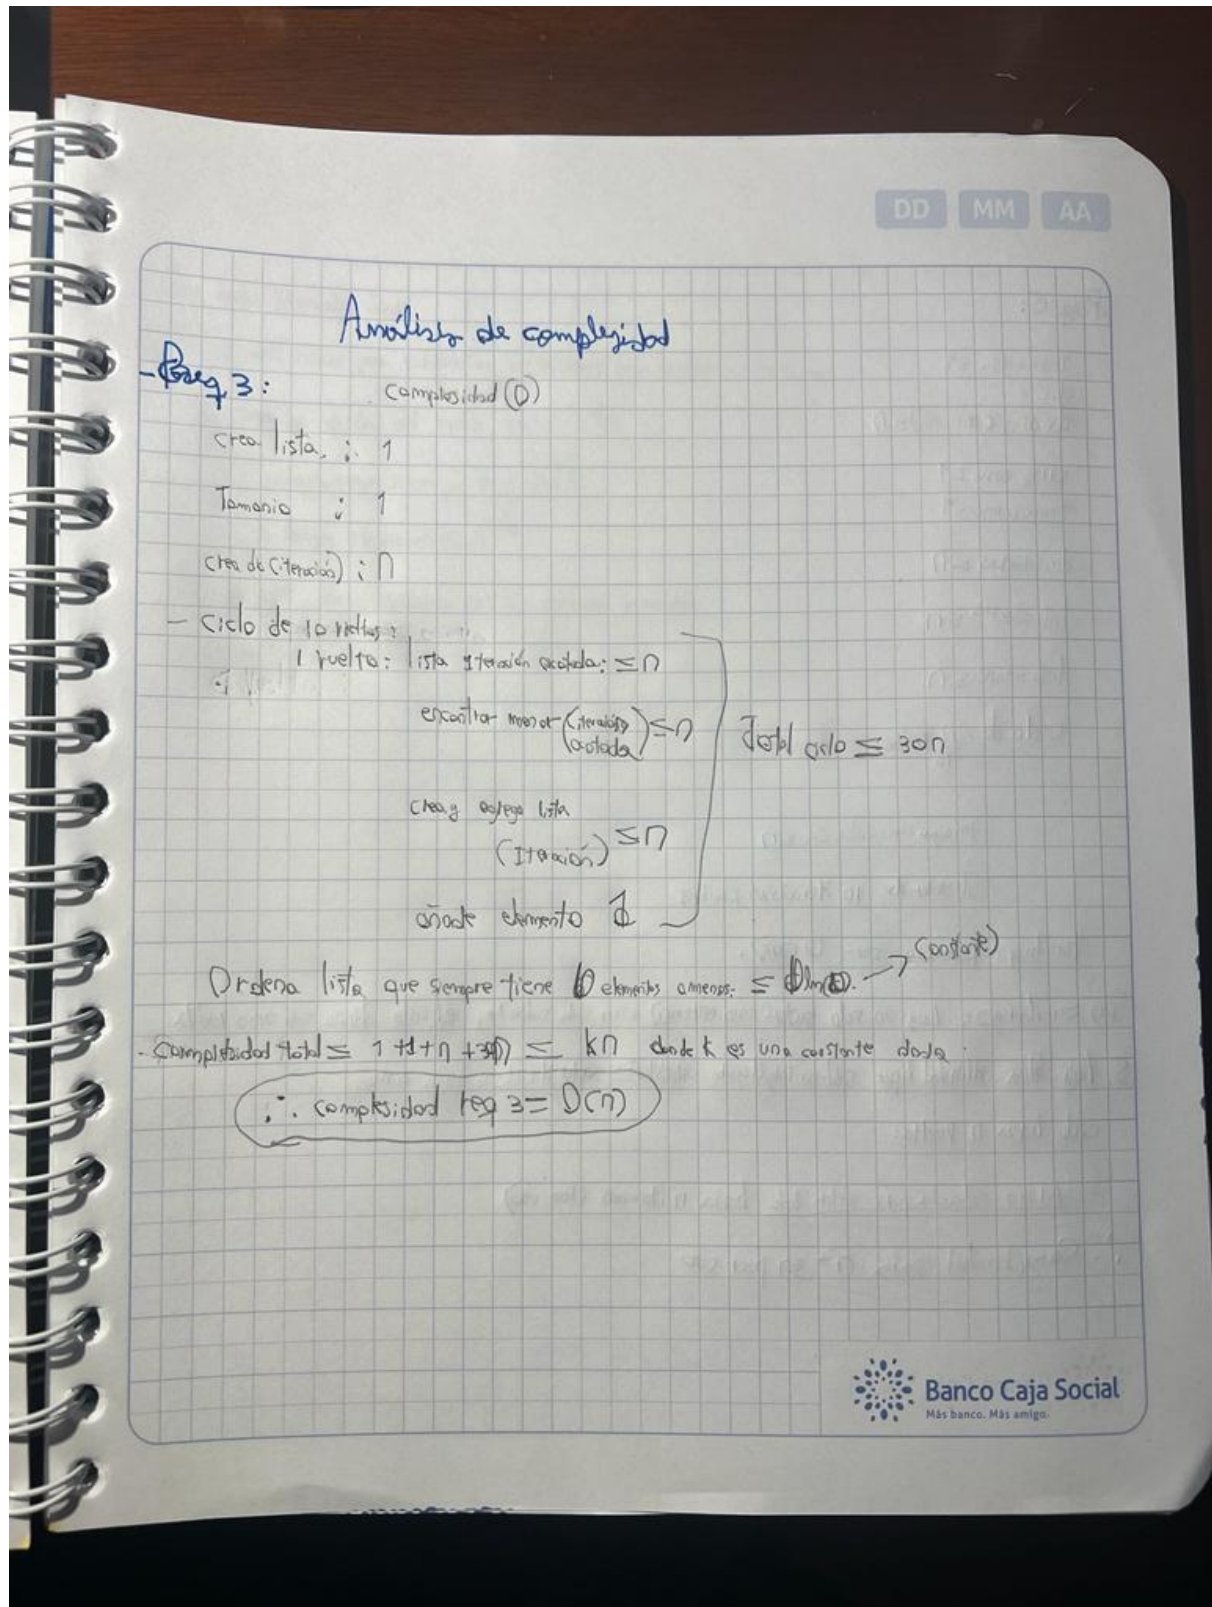 DD MM AA
Análisis de complejidad
- Req 3:
complejidad (O)
crea lista : 1
Tamanio : 1
crea de (iteración) : n
- Ciclo de 10 vueltas:
1 vuelta: lista iteración acotada: ≤ n
encontrar menor (iteración acotada) ≤ n
Total ciclo ≤ 30n
crea y agrega lista
(Iteración) ≤ n
añade elemento 1
Ordena lista que siempre tiene elementos o menos: ≤ → (constante)
- Complejidad total ≤ 1 + 1 + n + 30n ≤ kn donde k es una constante dada.
∴ complejidad req 3 = O(n)
Banco Caja Social
Más banco. Más amigo.